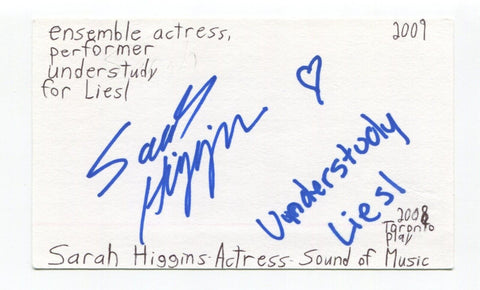 ensemble actress,
performer
understudy
for Liesl
2009
Sarah
Higgins
Understudy
Liesl
2008
Toronto
play
Sarah Higgins-Actress-Sound of Music